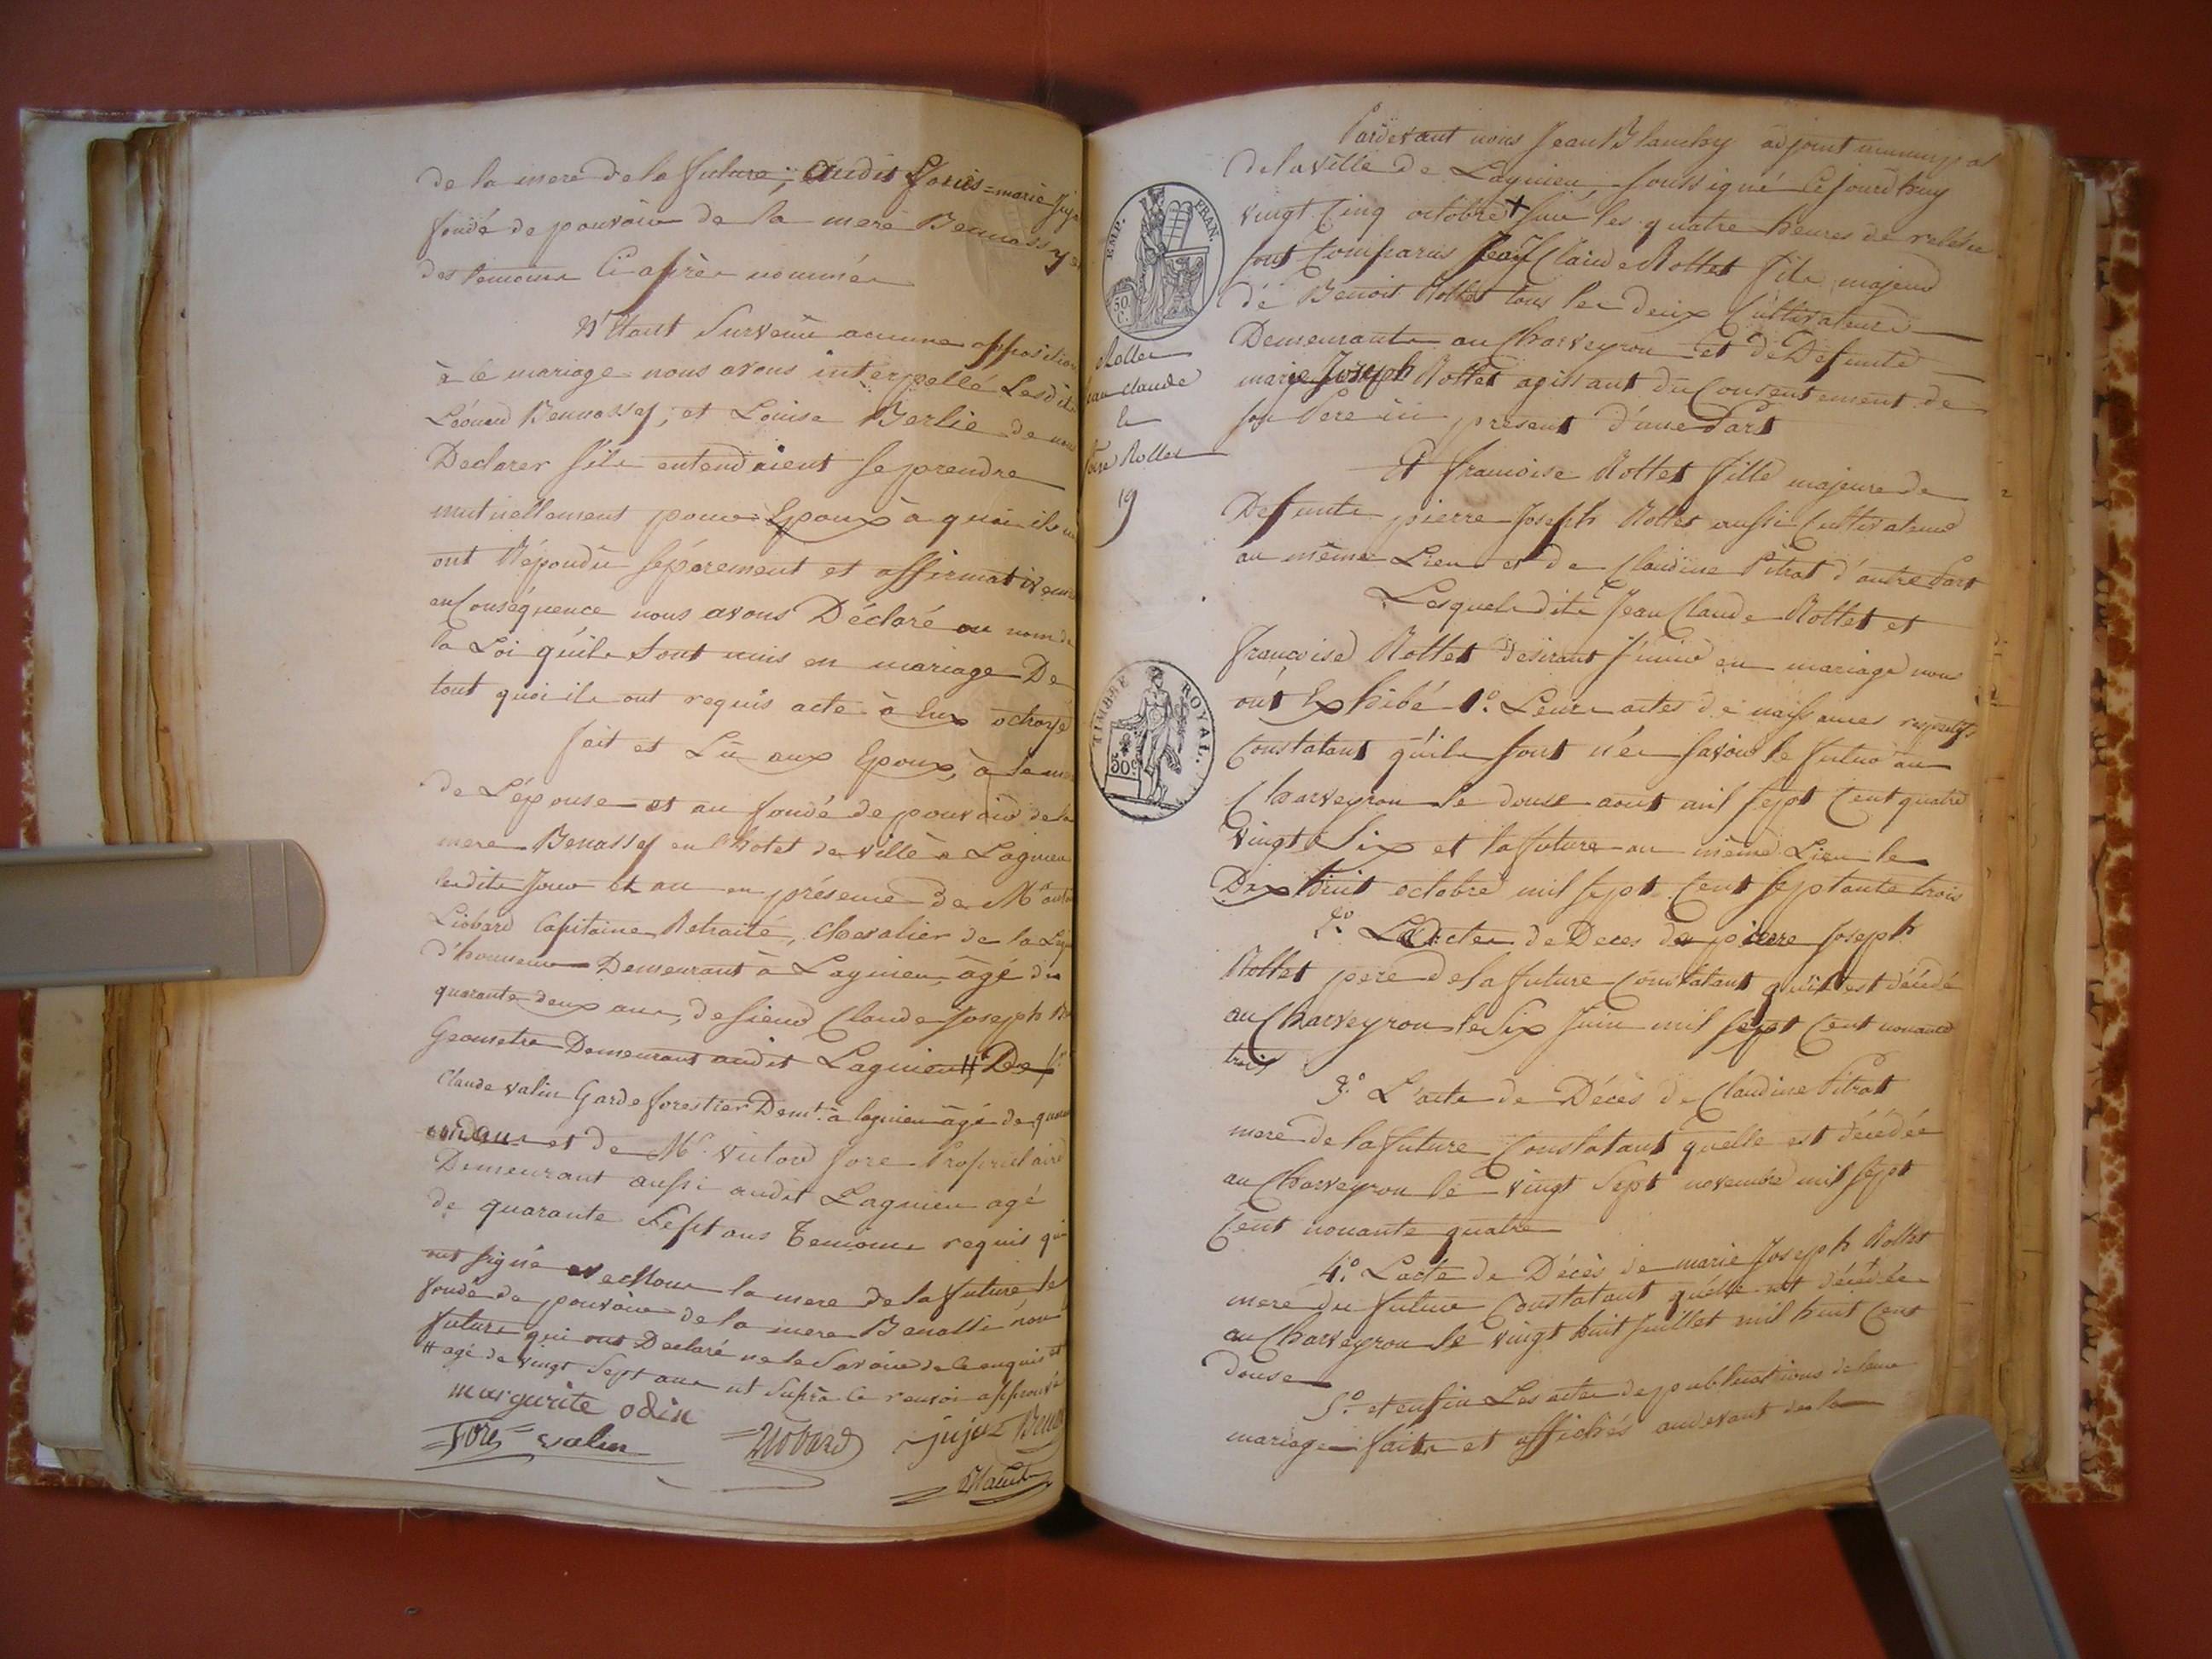 de la mere de la future; audit Louis=marie Juja
fondé de pouvoir de la mere Bennassy et
des temoins Ci après nommés
N'étant Survenu aucune opposition
à ce mariage nous avons interpellé Lesdits
Léonard Bennassy, et Louise Berlie de nous
Declarer s'ils entendoient se prendre
mutuellement pour Epoux à quoi ils
ont Répondu séparement et affirmativem
en Conséquence nous avons Déclaré au nom de
la Loi qu'ils sont unis en mariage De
tout quoi ils ont requis acte à Eux octroyé
fait et Lu aux Epoux, à la mere
de L'épouse et au fondé de pouvoir de la
mere Benassy en l'hotel de ville à Lagnieu
lesdits Jour et an en présence de Mr
Liobard Capitaine Retraité, chevalier de la Leg
d'honneur Demeurant à Lagnieu, âgé de
quarante deux ans, de sieur Claude Joseph
Geometre Demeurant audit Lagnieu # De sr
Claude valin Garde forestier Demt. à lagnieu âgé de
ans et de Mr. victor fore Proprietaire
Demeurant aussi audit Lagnieu agé
de quarante Sept ans temoins requis qui
ont signé avec nous la mere de la future le
fondé de pouvoir de la mere Benassi non
futurs qui ont Declaré ne le savoir de ce enquis et
# agé de vingt Sept ans ut supra le renvoi approuvé
margurite odin
fore valin Liobard jujat
EMP. FRAN.
50 C.
Rollet
jean claude
&
Rollet
19
TIMBRE ROYAL.
50 c.
Pardevant nous Jean Blanchy adjoint municipal
de la ville de Lagnieu, soussigné Cejourdhuy
vingt Cinq octobre + sur les quatre heures de relevée
sont Comparus Jean Claude Rollet fils majeur
de Benoit Rollet tous les deux Cultivateurs
Demeurants au Charveyron et de Defunte
marie Joseph Rollet agissant du Consentement de
son Pere ici présent d'une Part
Et francoise Rollet fille majeure de
Defunts pierre Joseph Rollet aussi Cultivateur
au même Lieu et de Claudine Pitrat d'autre Part
Lesquels dits Jean Claude Rollet et
francoise Rollet desirant s'unir en mariage nous
ont Exhibé 1.º Leurs actes de naissances respectifs
Constatant qu'ils sont nés savoir le futur au
Charveyron le douse aout mil sept Cent quatre
vingt Six et la future au même Lieu le
Dix huit octobre mil sept Cent septante trois
2.º L'acte de Deces de pierre Joseph
Rollet pere de la future Constatant qu'il est décédé
au Charveyron le Six Juin mil sept Cent nonante
trois
3.º L'acte de Décès de Claudine Pitrat
mere de la future Constatant quelle est décédée
au Charveyron le vingt Sept novembre mil sept
Cent nonante quatre
4.º L'acte de Décès de marie Joseph Rollet
mere du futur Constatant quelle est décédée
au Charveyron le vingt huit Juillet mil huit Cent
douse
5.º et enfin Les actes de publications de leur
mariage faits et affichés audevant de la